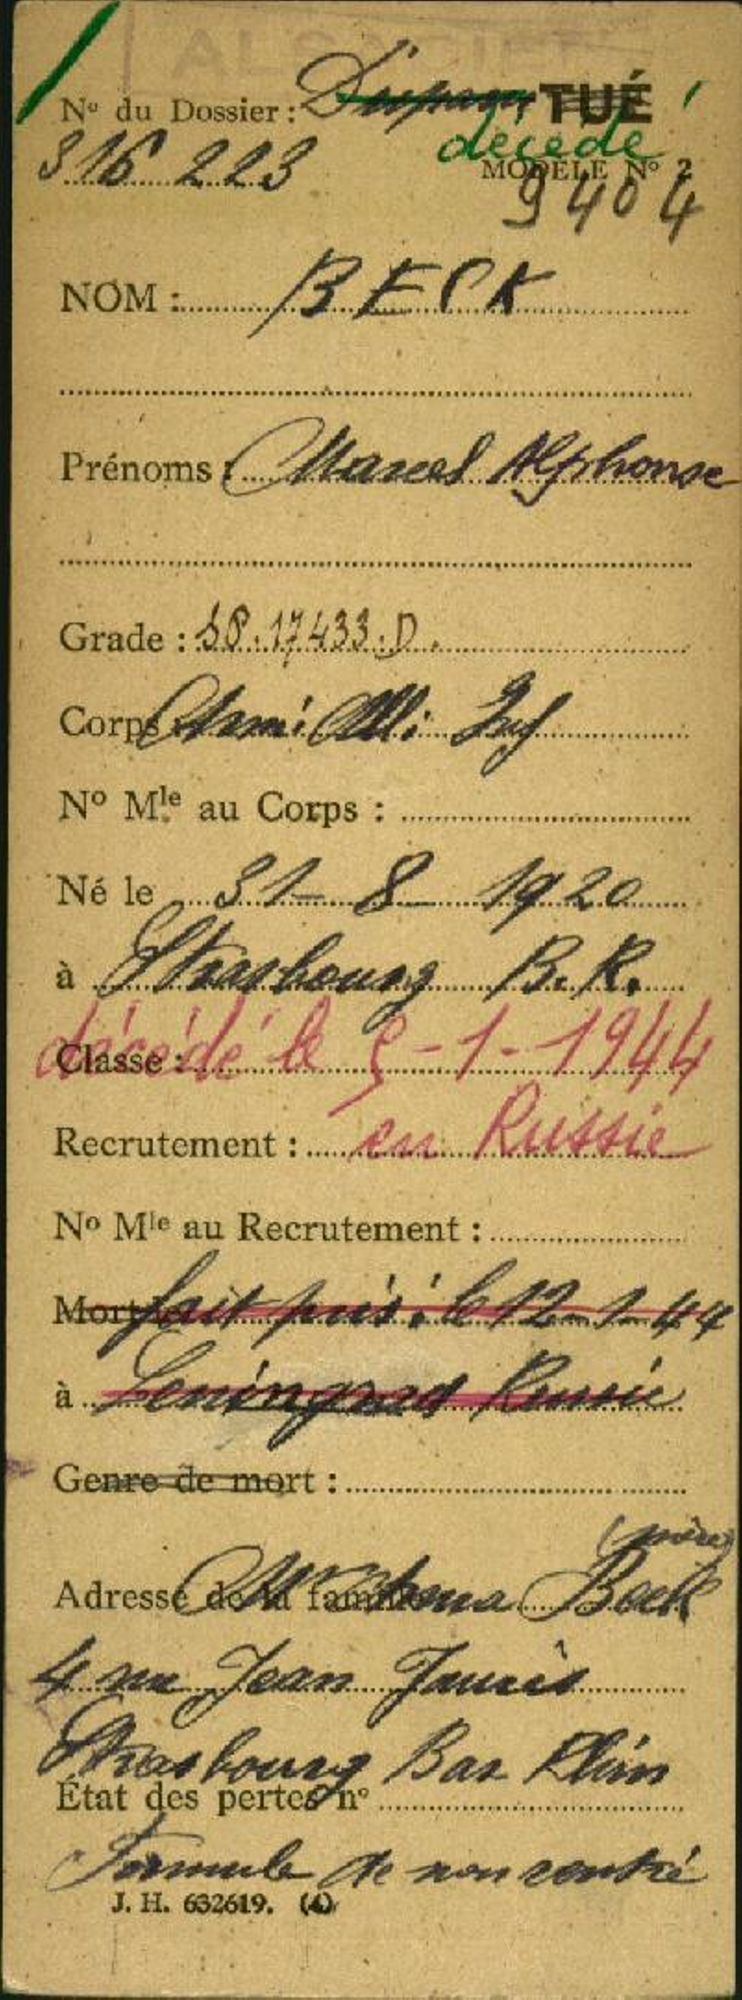 N° du Dossier : Disparu TUÉ
décédé
316 223 MODÈLE N° 2
9404
NOM : BECK
Prénoms : Marcel Alphonse
Grade : SP. 17433. D.
Corps : Armé Alle Inf
N° Mle au Corps :
Né le 31-8-1920
à Strasbourg B.R.
Classe : décédé le 5-1-1944
Recrutement : en Russie
N° Mle au Recrutement :
Mort le fait pris. le 12-1-44
à Leningrad Russie
Genre de mort :
(mère)
Adresse de la famille Mme Beck
4 rue Jean Jaurès
Strasbourg Bas Rhin
État des pertes n°
Formule de non rentré
J. H. 632619. (4)